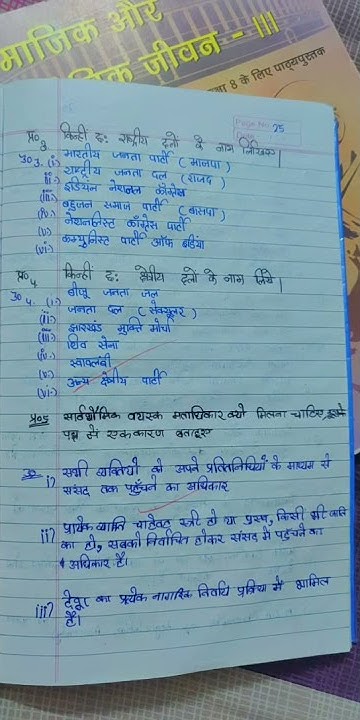 माजिक और
क जीवन - III
कक्षा 8 के लिए पाठ्यपुस्तक
Page No. 25
प्र० 3. किन्हीं छ: राष्ट्रीय दलों के नाम लिखिए।
उ० 3. (i) भारतीय जनता पार्टी (भाजपा)
(ii) राष्ट्रीय जनता दल (राजद)
(iii) इंडियन नेशनल कांग्रेस
(iv) बहुजन समाज पार्टी (बासपा)
(v) नेशनलिस्ट काँग्रेस पार्टी
(vi) कम्युनिस्ट पार्टी ऑफ इंडिया
प्र० 4 किन्हीं छ: क्षेत्रीय दलों के नाम लिखें।
उ० 4. (i) बीजू जनता जल
(ii) जनता दल (सेक्यूलर)
(iii) झारखंड मुक्ति मोर्चा
(iv) शिव सेना
(v) स्वावलंबी
(vi) अन्य क्षेत्रीय पार्टी
प्र० 5 सार्वभौमिक वयस्क मताधिकार क्यों मिलना चाहिए इसके
पक्ष में एक कारण बताइए
उ० i) सभी व्यक्तियों को अपने प्रतिनिधियों के माध्यम से
संसद तक पहुँचने का अधिकार
ii) प्रत्येक व्यक्ति चाहे वह स्त्री हो या पुरुष, किसी भी जाति
का हो, सबको निर्वाचित होकर संसद में पहुँचने का
अधिकार है।
iii) देश का प्रत्येक नागरिक प्रक्रिया में शामिल
है।